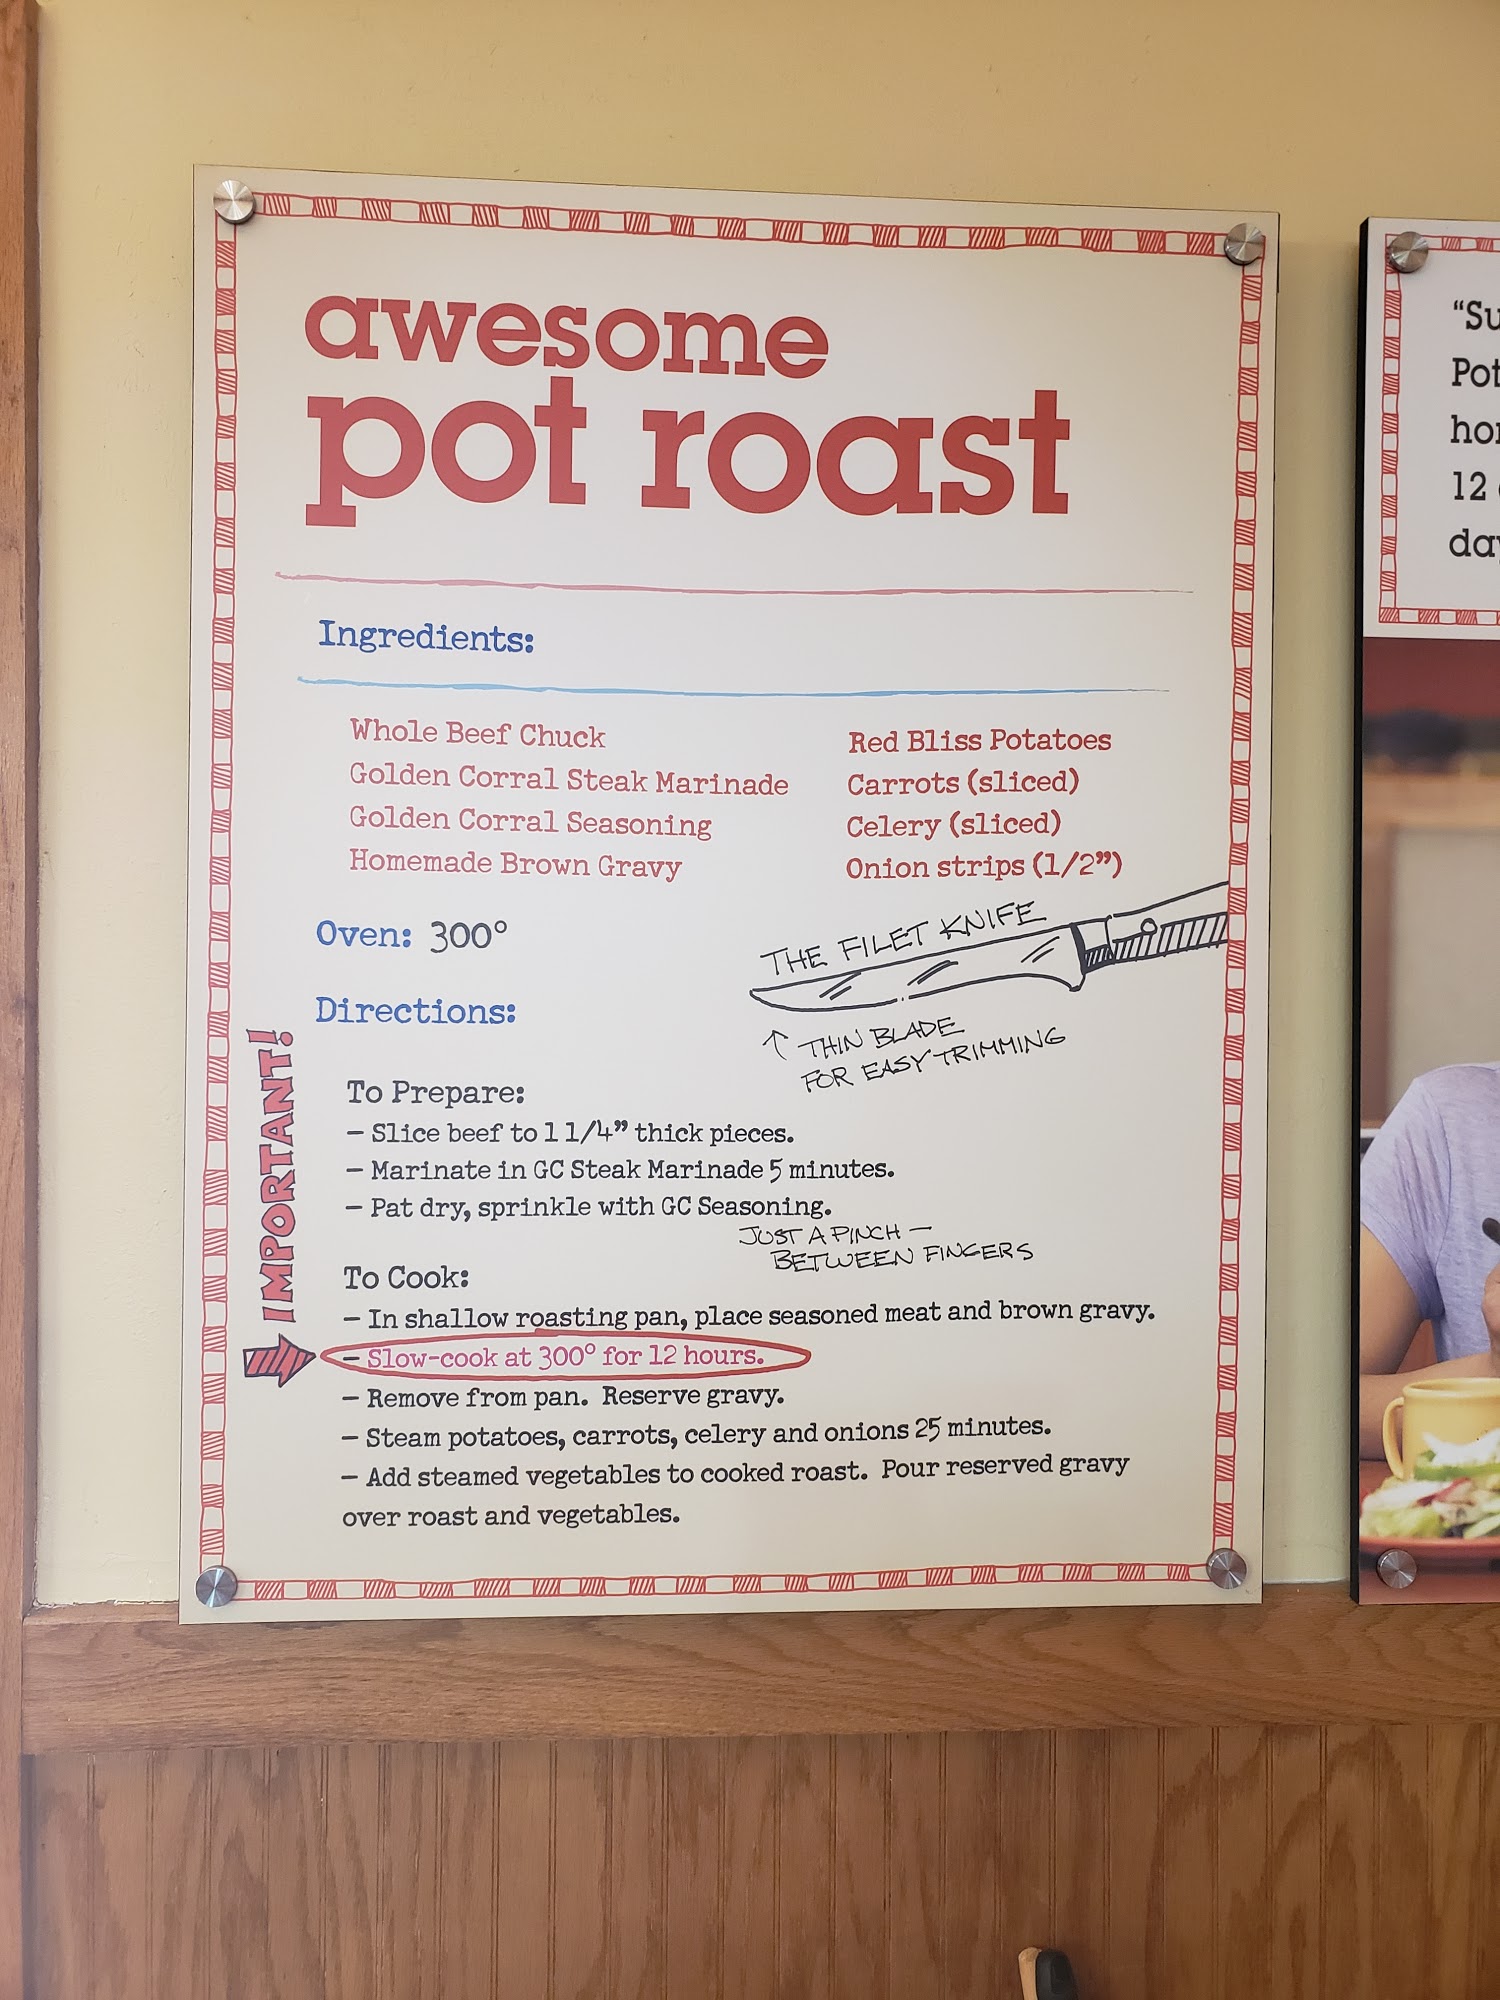 awesome
pot roast
Ingredients:
Whole Beef Chuck
Golden Corral Steak Marinade
Golden Corral Seasoning
Homemade Brown Gravy
Red Bliss Potatoes
Carrots (sliced)
Celery (sliced)
Onion strips (1/2")
Oven: 300°
THE FILET KNIFE
↑ THIN BLADE
FOR EASY TRIMMING
Directions:
IMPORTANT!
To Prepare:
– Slice beef to 1 1/4" thick pieces.
– Marinate in GC Steak Marinade 5 minutes.
– Pat dry, sprinkle with GC Seasoning.
JUST A PINCH –
BETWEEN FINGERS
To Cook:
– In shallow roasting pan, place seasoned meat and brown gravy.
– Slow-cook at 300° for 12 hours.
– Remove from pan. Reserve gravy.
– Steam potatoes, carrots, celery and onions 25 minutes.
– Add steamed vegetables to cooked roast. Pour reserved gravy
over roast and vegetables.
"Su
Pot
hor
12
day